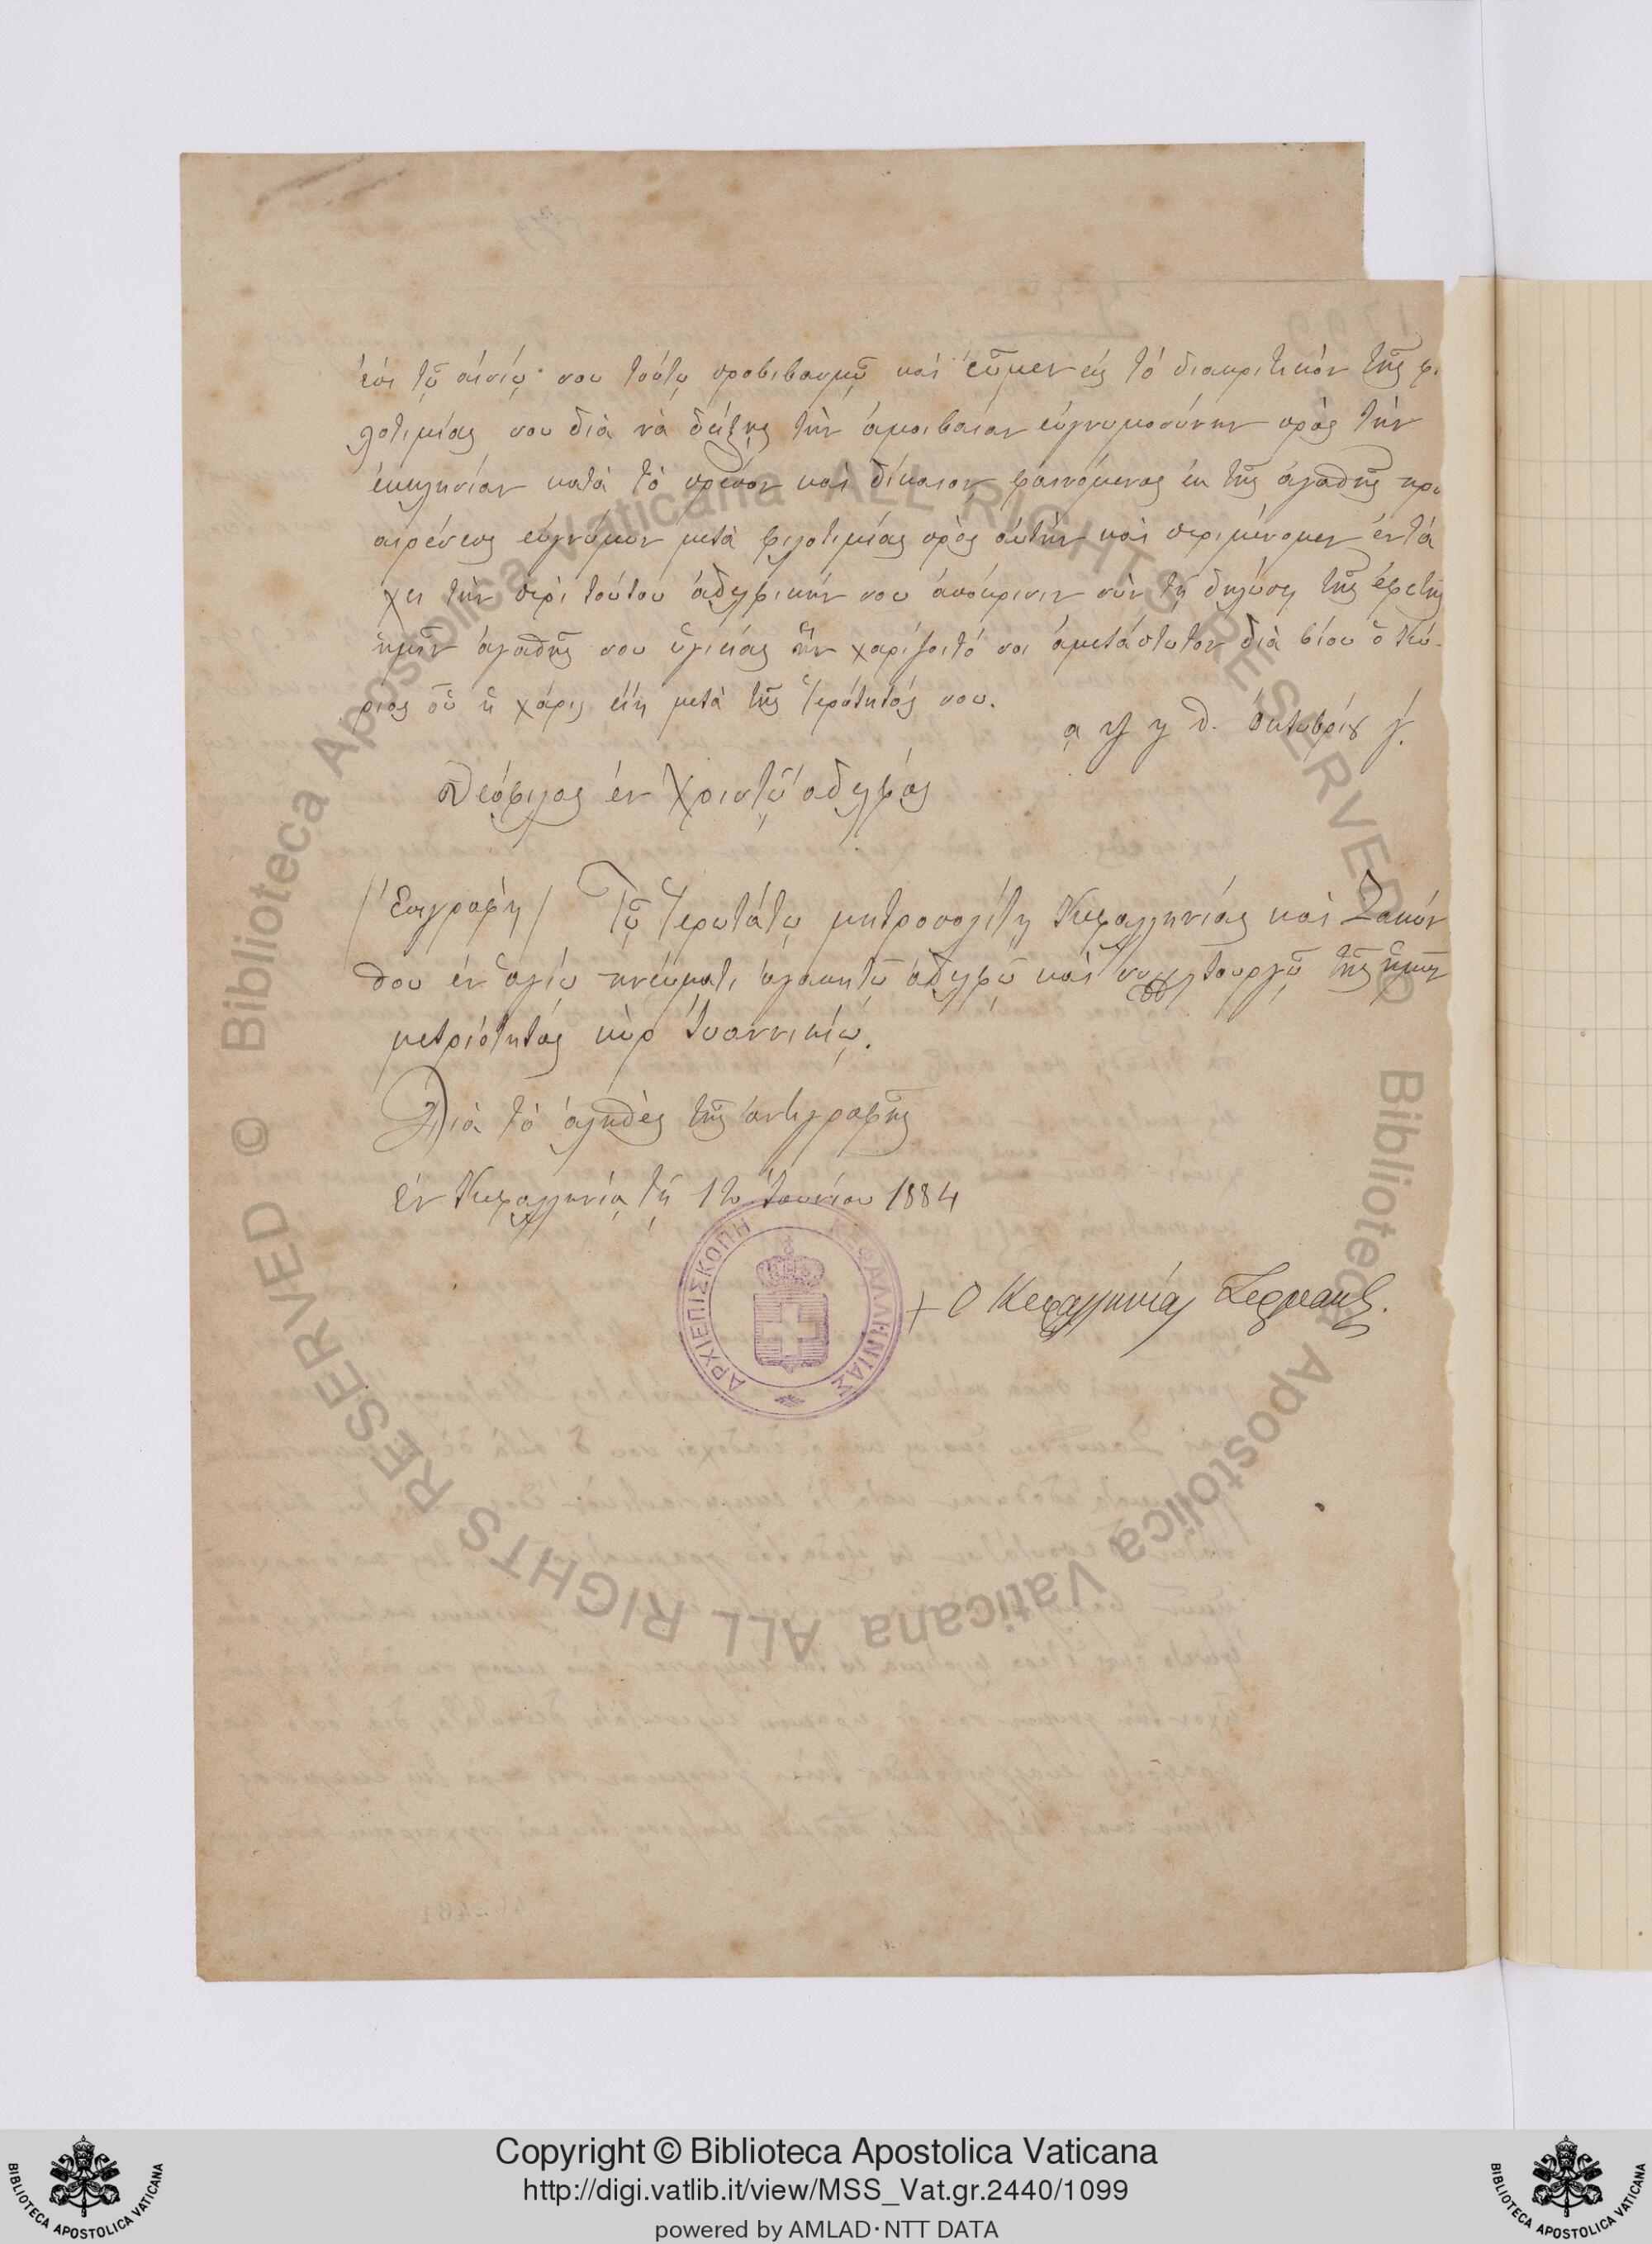 ἐπὶ τῷ αἰσίῳ σου τούτῳ προβιβασμῷ καὶ ἐῶμεν εἰς τὸ διακριτικὸν τῆς φι
λοτιμίας σου διὰ νὰ δείξῃς τὴν ἀμοιβαίαν εὐγνωμοσύνην πρὸς τὴν
ἐκκλησίαν κατὰ τὸ πρέπον καὶ δίκαιον φαινόμενος ἐκ τῆς ἀγαθῆς προ
αιρέσεως εὐγνώμων μετὰ φιλοτιμίας πρὸς αὐτὴν καὶ περιμένομεν ἐν τά
χει τὴν περὶ τούτου ἀδελφικήν σου ἀπόκρισιν σὺν τῇ δηλώσει τῆς ἐφετῆς
ἡμῖν ἀγαθῆς σου ὑγιείας ἣν χαρίζοιτό σοι ἀμετάπτωτον διὰ βίου ὁ Κύ-
ριος οὗ ἡ χάρις εἴη μετὰ τῆς Ἱερότητός σου.
α ψ ϟ θ. ὀκτωβρίȣ γ.
Θεόφιλος ἐν Χριστῷ ἀδελφός
/Ἐπιγραφή/ Τῷ Ἱερωτάτῳ μητροπολίτῃ Κεφαλληνίας καὶ Ζακύν
θου ἐν ἁγίῳ πνεύματι ἀγαπητῷ ἀδελφῷ καὶ συλλειτουργῷ τῆς ἡμῶν
μετριότητος κὺρ Ἰωαννικίῳ.
Διὰ τὸ ἀληθὲς τῆς ἀντιγραφῆς
ἐν Κεφαλληνίᾳ τῇ 12 Ἰουνίου 1884
+ Ὁ Κεφαλληνίας Γερμανός.
ΑΡΧΙΕΠΙΣΚΟΠΗ ΚΕΦΑΛΛΗΝΙΑΣ
© Biblioteca Apostolica Vaticana ALL RIGHTS RESERVED
© Biblioteca Apostolica Vaticana ALL RIGHTS RESERVED
Copyright © Biblioteca Apostolica Vaticana
http://digi.vatlib.it/view/MSS_Vat.gr.2440/1099
powered by AMLAD·NTT DATA
BIBLIOTECA APOSTOLICA VATICANA
BIBLIOTECA APOSTOLICA VATICANA